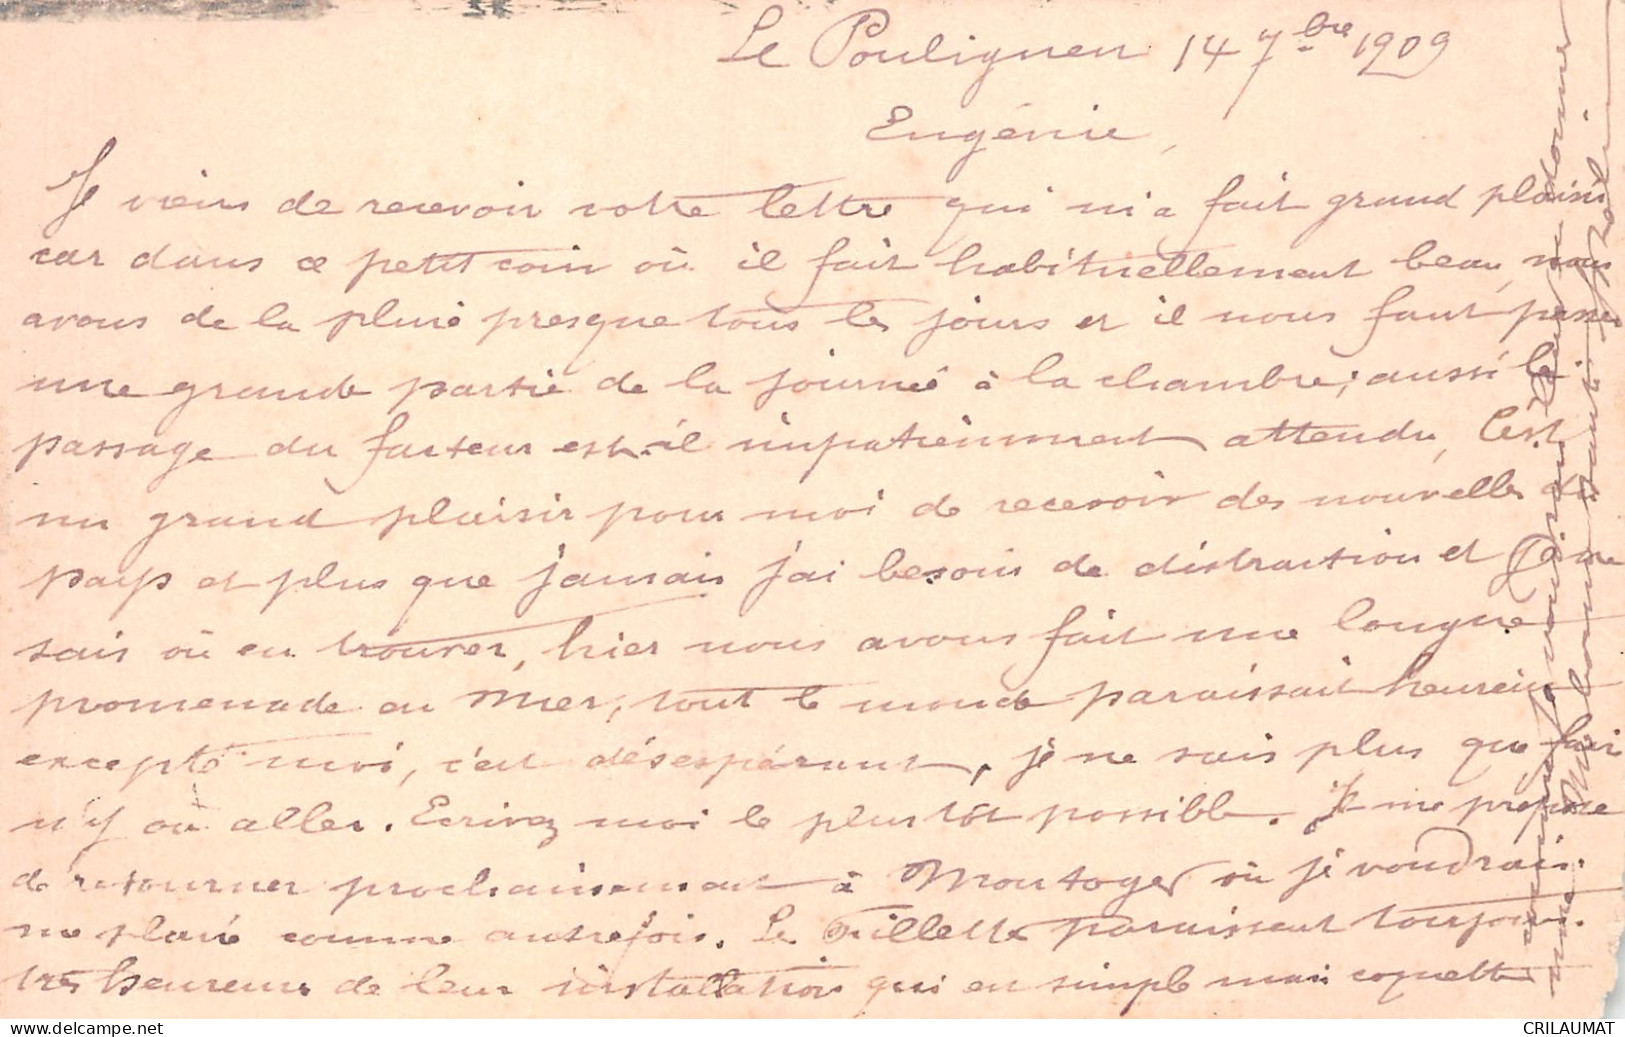 Le Pouliguen 14 7bre 1909
Eugénie,
Je viens de recevoir votre lettre qui m'a fait grand plaisir
car dans ce petit coin où il fait habituellement beau, nous
avons de la pluie presque tous les jours et il nous faut passer
une grande partie de la journée à la chambre; aussi le
passage du facteur est-il impatiemment attendu, C'est
un grand plaisir pour moi de recevoir des nouvelles du
pays et plus que jamais j'ai besoin de distraction et je ne
sais où en trouver, hier nous avons fait une longue
promenade en mer, tout le monde paraissait heureux
excepté moi, c'est désespérant, je ne sais plus que faire
n'y où aller. Ecrivez moi le plus tôt possible. Je me propose
de retourner prochainement à où je voudrais
me plaire comme autrefois. Le paraissent toujours
très heureux de leur installation qui en simple mais coquette
Ma bonne santé